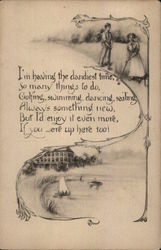 I'm having the dandiest time,
So many things to do,
Golfing, swimming, dancing, eating,
Always something new,
But I'd enjoy it even more,
If you were up here too!